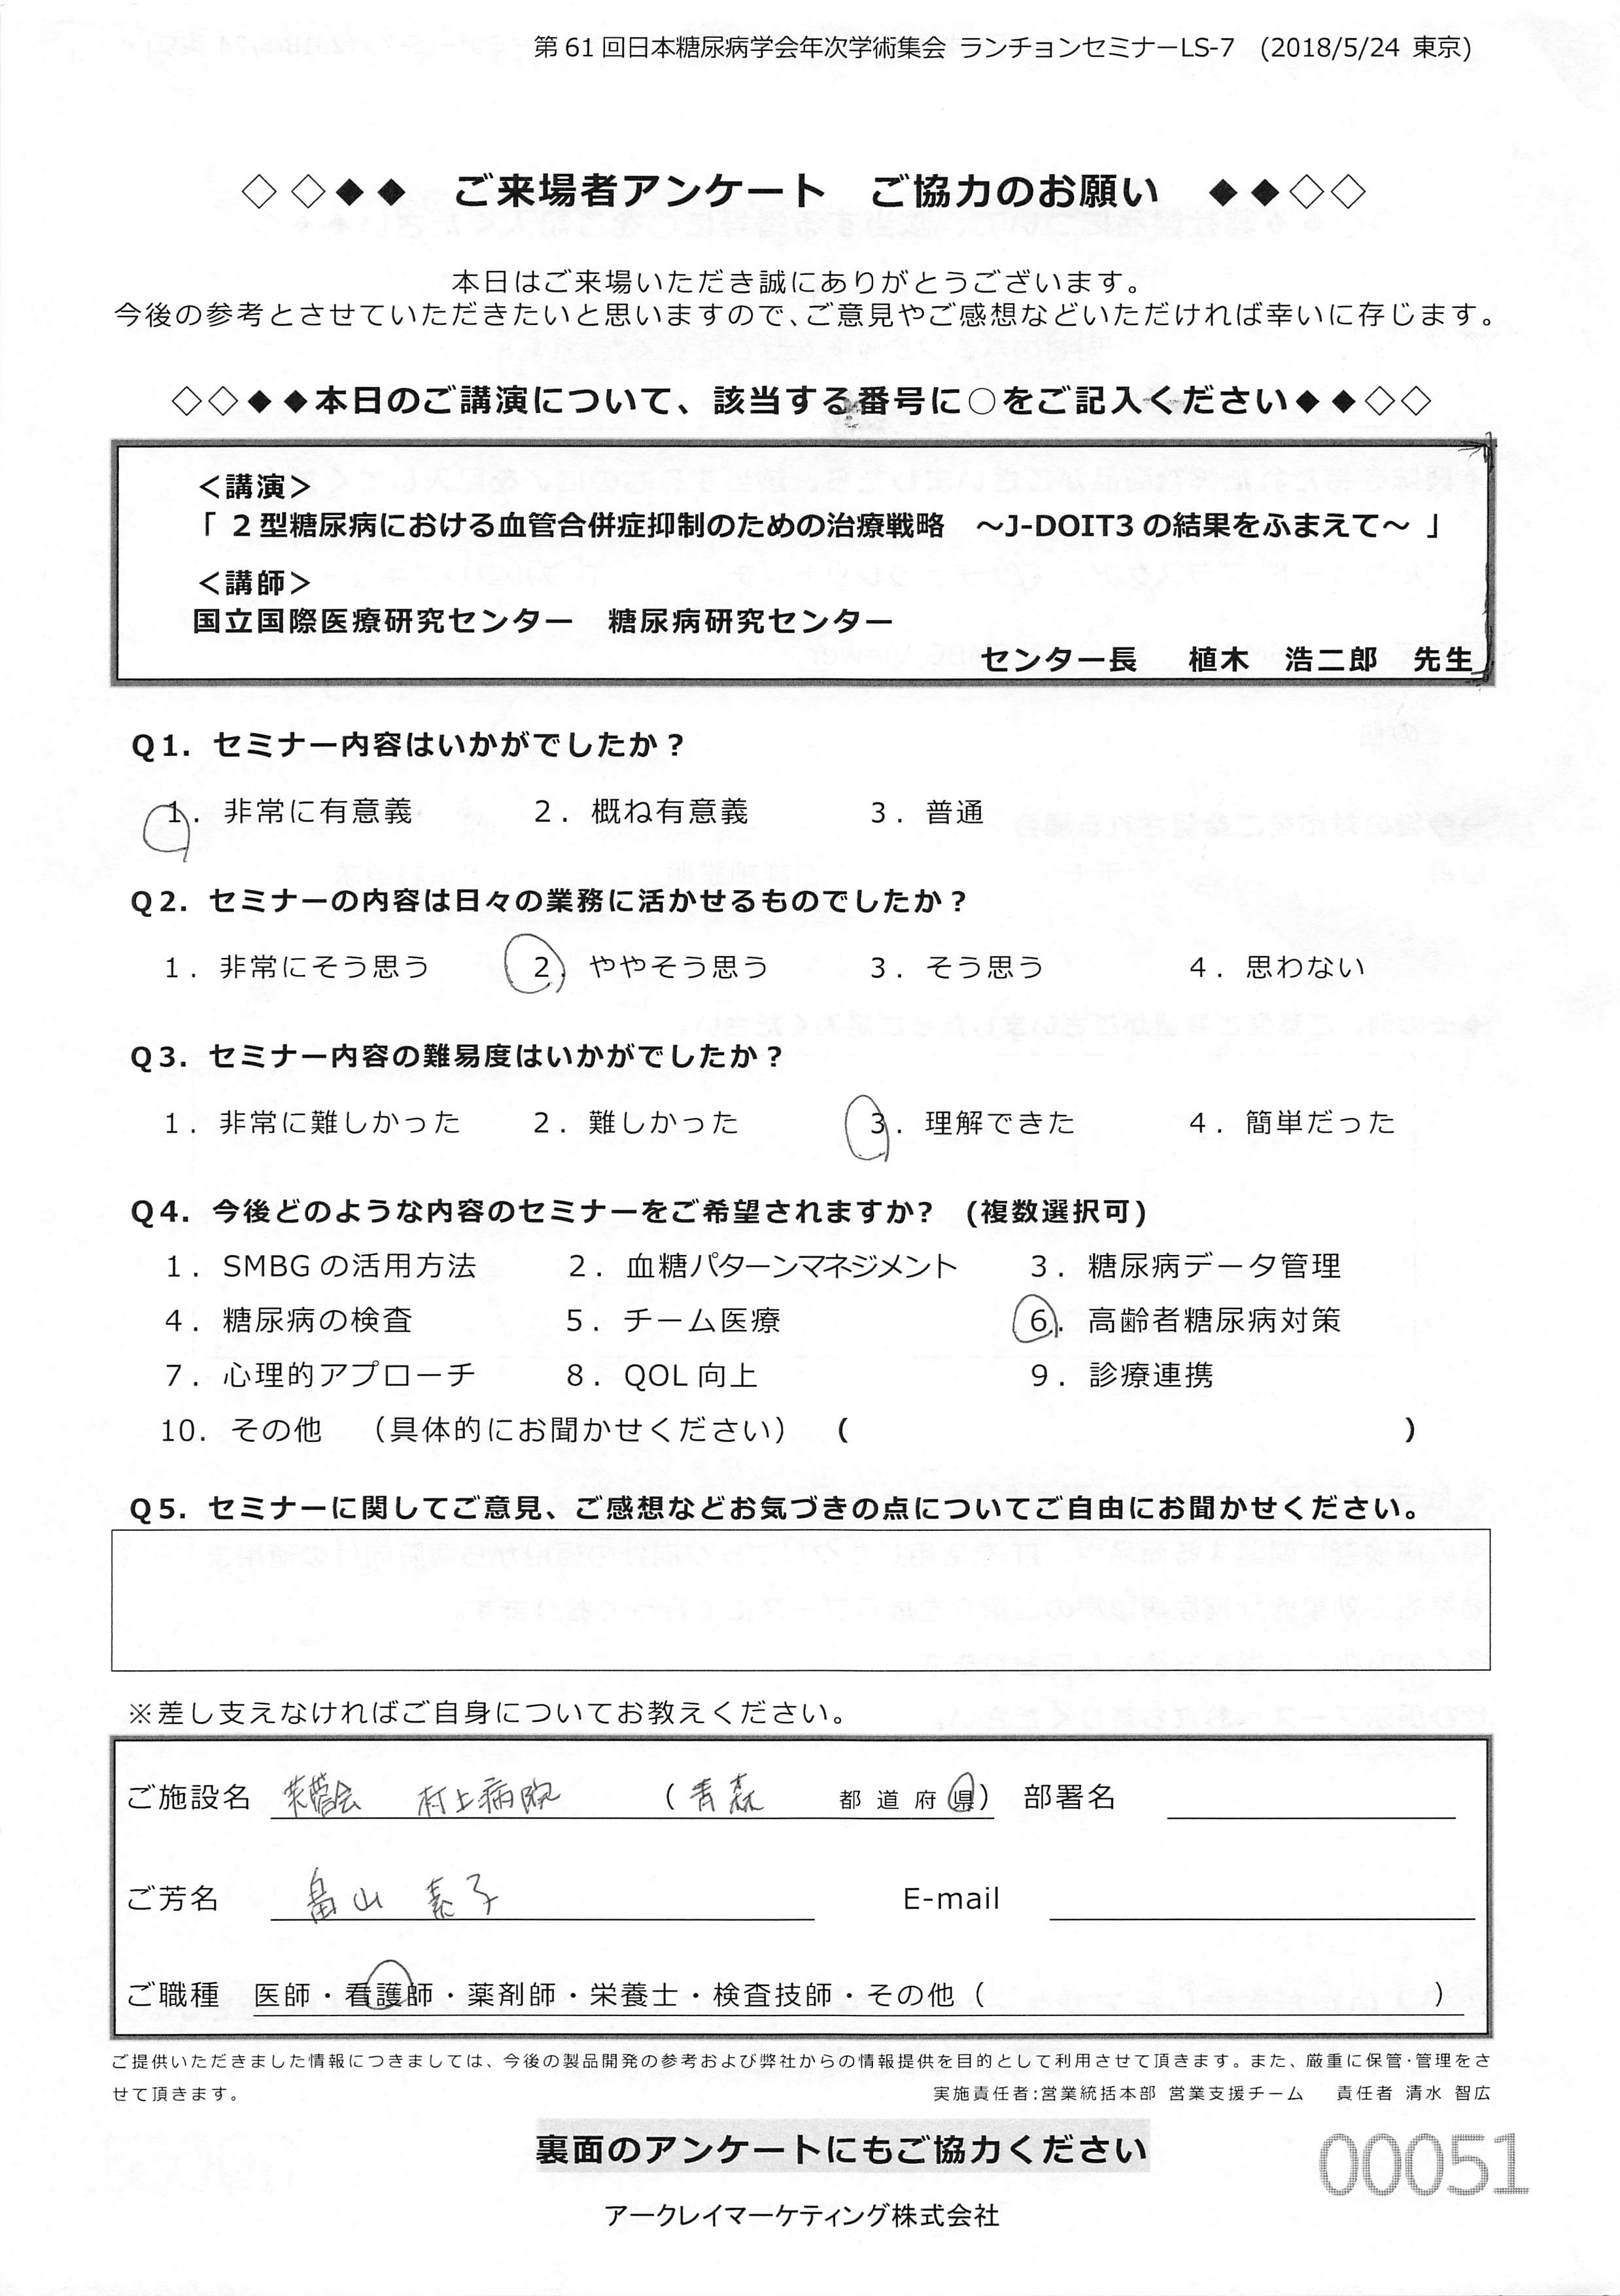 第61回日本糖尿病学会年次学術集会 ランチョンセミナーLS-7 (2018/5/24 東京)
◇◇◆◆ ご来場者アンケート ご協力のお願い ◆◆◇◇
本日はご来場いただき誠にありがとうございます。
今後の参考とさせていただきたいと思いますので、ご意見やご感想などいただければ幸いに存じます。
◇◇◆◆本日のご講演について、該当する番号に○をご記入ください◆◆◇◇
＜講演＞
「 2型糖尿病における血管合併症抑制のための治療戦略 ～J-DOIT3の結果をふまえて～ 」
＜講師＞
国立国際医療研究センター 糖尿病研究センター
センター長 植木 浩二郎 先生
Q1. セミナー内容はいかがでしたか？
1. 非常に有意義 2. 概ね有意義 3. 普通
Q2. セミナーの内容は日々の業務に活かせるものでしたか？
1. 非常にそう思う 2. ややそう思う 3. そう思う 4. 思わない
Q3. セミナー内容の難易度はいかがでしたか？
1. 非常に難しかった 2. 難しかった 3. 理解できた 4. 簡単だった
Q4. 今後どのような内容のセミナーをご希望されますか? (複数選択可)
1. SMBGの活用方法 2. 血糖パターンマネジメント 3. 糖尿病データ管理
4. 糖尿病の検査 5. チーム医療 6. 高齢者糖尿病対策
7. 心理的アプローチ 8. QOL向上 9. 診療連携
10. その他 （具体的にお聞かせください） ( )
Q5. セミナーに関してご意見、ご感想などお気づきの点についてご自由にお聞かせください。
※差し支えなければご自身についてお教えください。
ご施設名 芙蓉会 村上病院 (青森 都道府県) 部署名
ご芳名 畠山 素子 E-mail
ご職種 医師・看護師・薬剤師・栄養士・検査技師・その他 ( )
ご提供いただきました情報につきましては、今後の製品開発の参考および弊社からの情報提供を目的として利用させて頂きます。また、厳重に保管・管理をさ
せて頂きます。 実施責任者:営業統括本部 営業支援チーム 責任者 清水 智広
裏面のアンケートにもご協力ください
00051
アークレイマーケティング株式会社